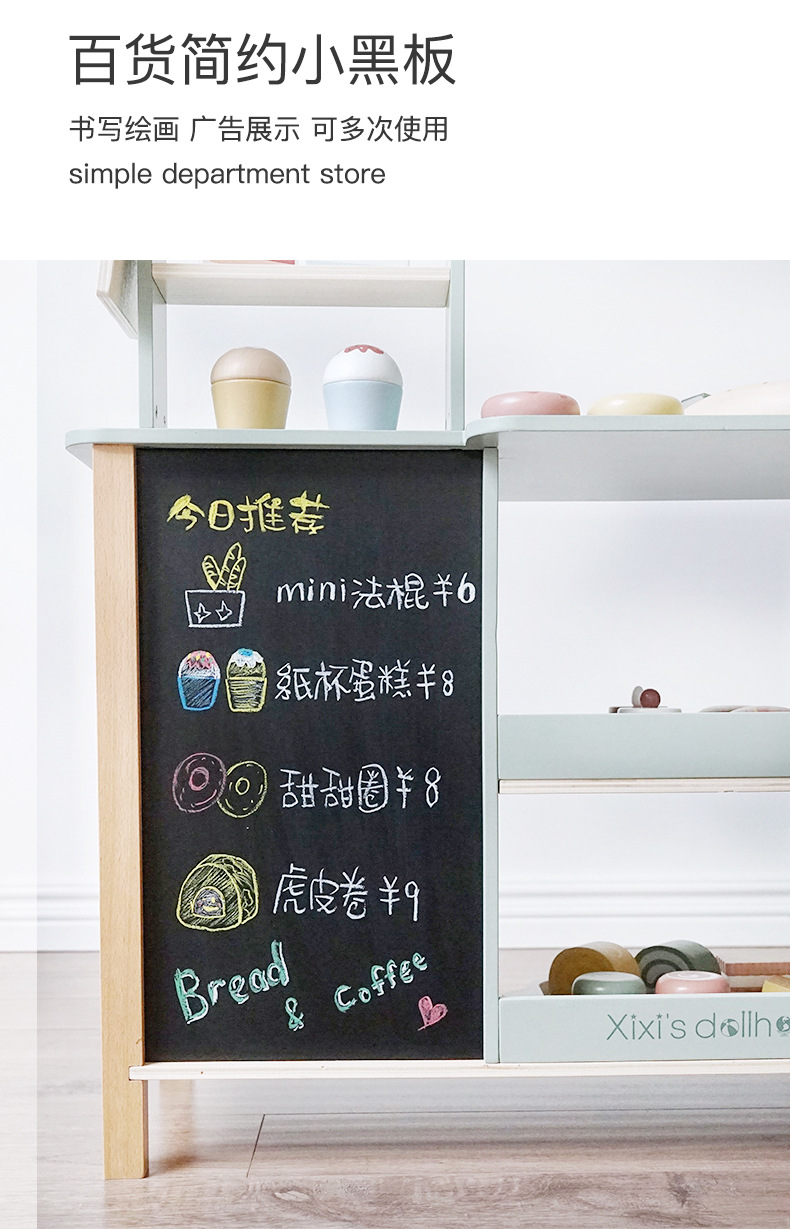 百货简约小黑板
书写绘画 广告展示 可多次使用
simple department store
今日推荐
mini法棍¥6
紙杯蛋糕¥8
甜甜圈¥8
虎皮卷¥9
Bread
& Coffee
Xixi's dollho